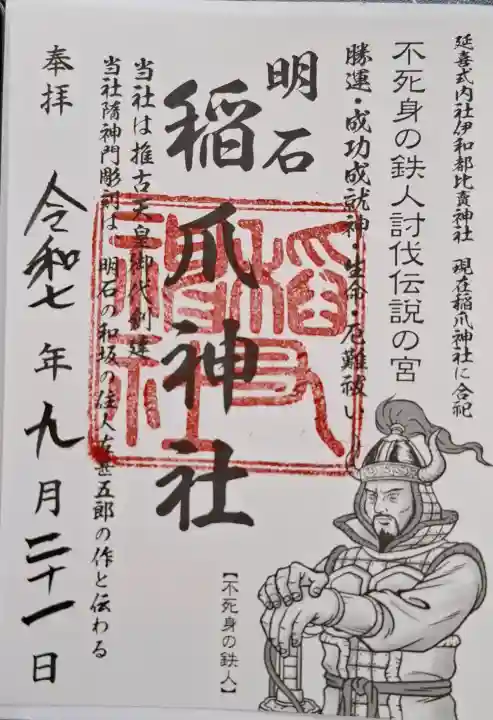 延喜式内社伊和都比売神社 現在稲爪神社に合祀
不死身の鉄人討伐伝説の宮
勝運・成功成就神・生命・厄難祓い
明石
稲爪神社
当社は推古天皇御代創建
当社隋神門彫刻は、明石の和坂の住人左甚五郎の作と伝わる
奉拝
令和七年九月二十一日
【不死身の鉄人】